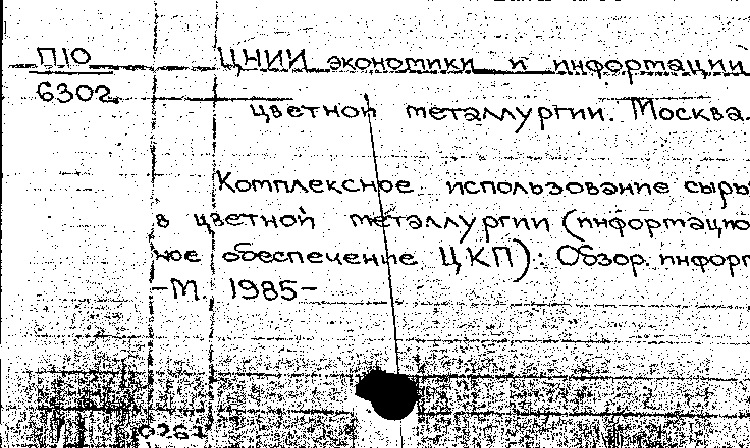 П10 ЦНИИ экономики и информации
6302
цветной металлургии. Москва.
Комплексное использование сырь
в цветной металлургии (информацио
ное обеспечение ЦКП): Обзор. информ
-М., 1985-